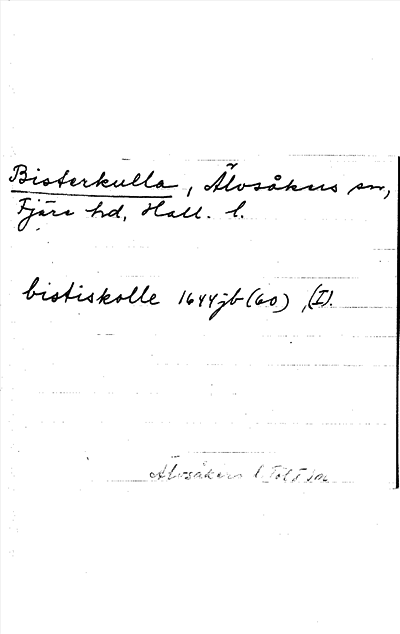 Bisterkulla, Älvsåkers sn,
Fjäre hd, Hall. l.
bistiskolle 1644jb(60), (I).
Älvsåkers